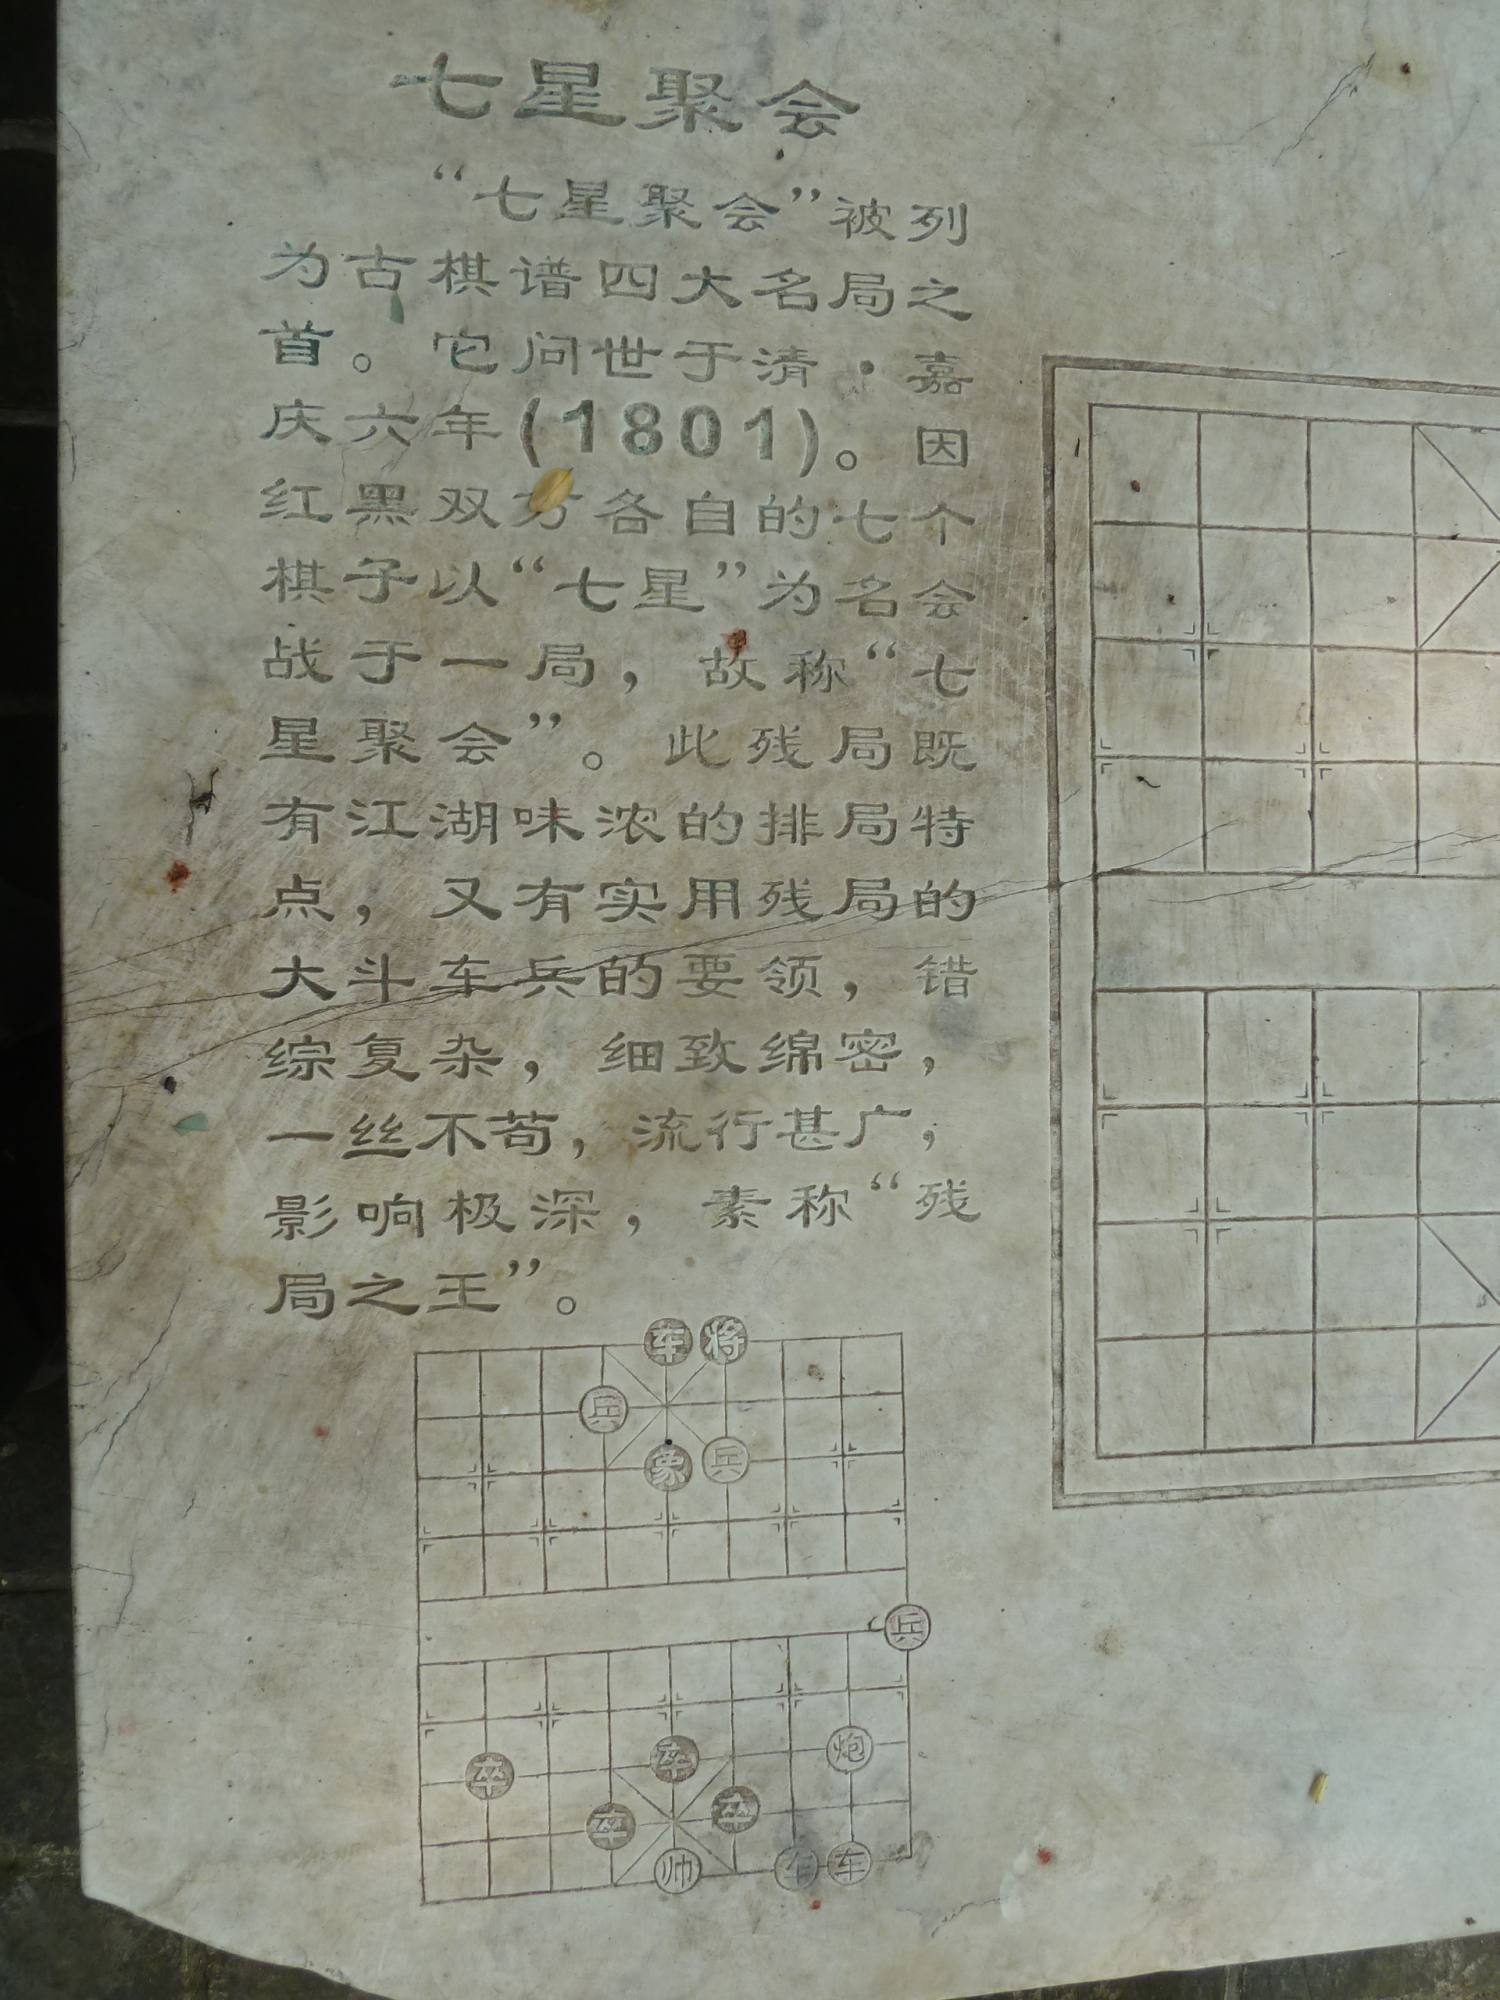 七星聚会
“七星聚会”被列
为古棋谱四大名局之
首。它问世于清·嘉
庆六年(1801)。因
红黑双方各自的七个
棋子以“七星”为名会
战于一局，故称“七
星聚会”。此残局既
有江湖味浓的排局特
点，又有实用残局的
大斗车兵的要领，错
综复杂，细致绵密，
一丝不苟，流行甚广，
影响极深，素称“残
局之王”。
车 将
兵
象 兵
兵
卒 卒 炮
卒 卒
帅 车 车